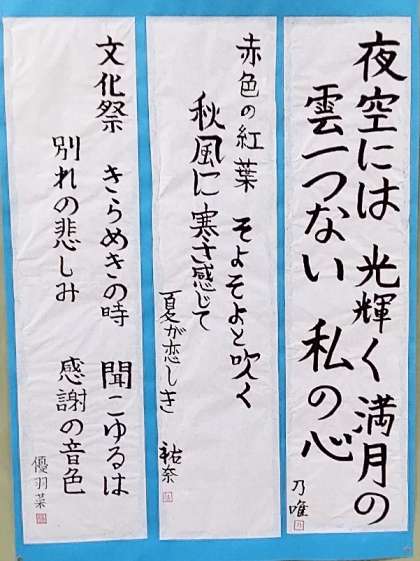 夜空には 光輝く満月の
雲一つない 私の心
乃唯
赤色の紅葉 そよそよと吹く
秋風に 寒さ感じて
夏が恋しき
祐奈
文化祭 きらめきの時 聞こゆるは
別れの悲しみ 感謝の音色
優羽菜